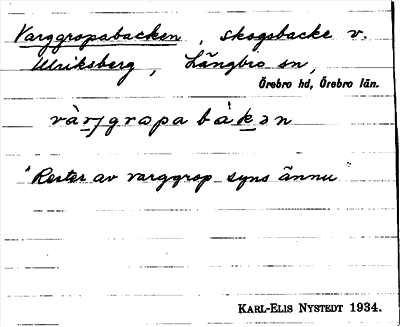 Varggropabacken, skogsbacke v.
Ulriksberg, Längbro sn,
Örebro hd, Örebro län.
vàrjgropabàkən
"Rester av varggrop syns ännu"
KARL-ELIS NYSTEDT 1934.